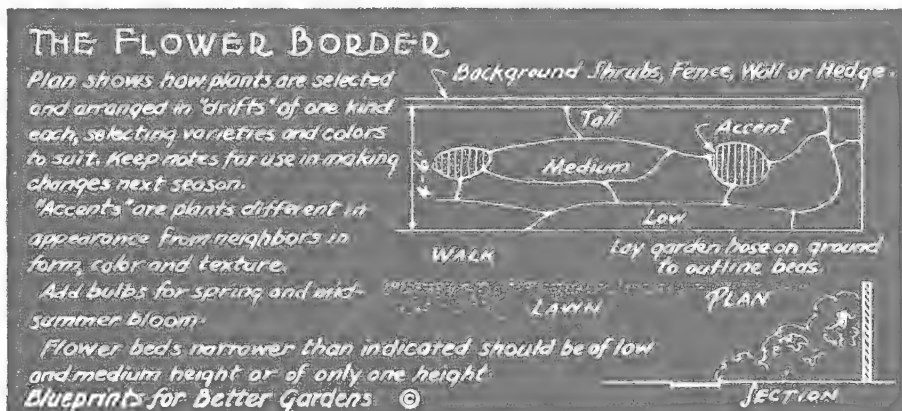 THE FLOWER BORDER
Plan shows how plants are selected
and arranged in "drifts" of one kind
each, selecting varieties and colors
to suit. Keep notes for use in making
changes next season.
"Accents" are plants different in
appearance from neighbors in
form, color and texture.
Add bulbs for spring and mid-
summer bloom.
Flower beds narrower than indicated should be of low
and medium height or of only one height
Blueprints for Better Gardens ©
Background Shrubs, Fence, Wall or Hedge.
Tall
Accent
Medium
Low
WALK
Lay garden hose on ground
to outline beds.
LAWN
PLAN
SECTION